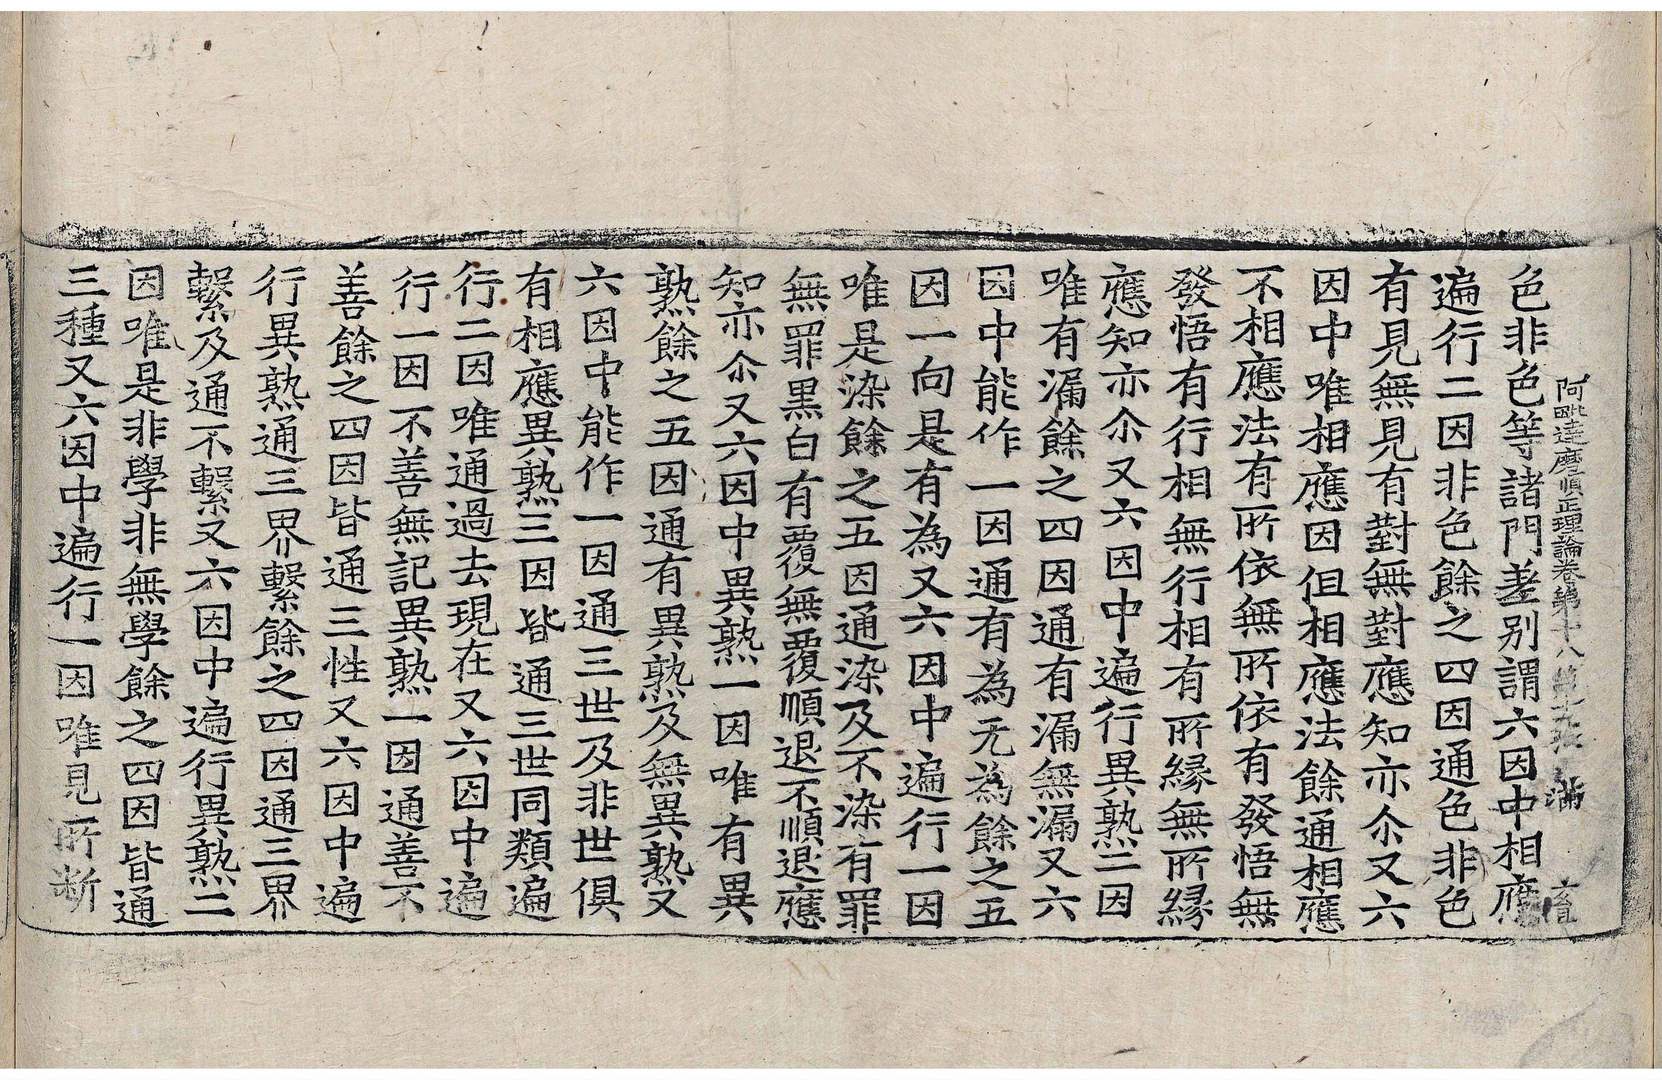 阿毗達磨順正理論卷第十八 第十九張 滿
色非色等諸門差別謂六因中相應
遍行二因非色餘之四因通色非色
有見無見有對無對應知亦尒又六
因中唯相應因但相應法餘通相應
不相應法有所依無所依有發悟無
發悟有行相無行相有所緣無所緣
應知亦尒又六因中遍行異熟二因
唯有漏餘之四因通有漏無漏又六
因中能作一因通有為无為餘之五
因一向是有為又六因中遍行一因
唯是染餘之五因通染及不染有罪
無罪黑白有覆無覆順退不順退應
知亦尒又六因中異熟一因唯有異
熟餘之五因通有異熟及無異熟又
六因中能作一因通三世及非世俱
有相應異熟三因皆通三世同類遍
行二因唯通過去現在又六因中遍
行一因不善無記異熟一因通善不
善餘之四因皆通三性又六因中遍
行異熟通三界繫餘之四因通三界
繫及通不繫又六因中遍行異熟二
因唯是非學非無學餘之四因皆通
三種又六因中遍行一因唯見所斷